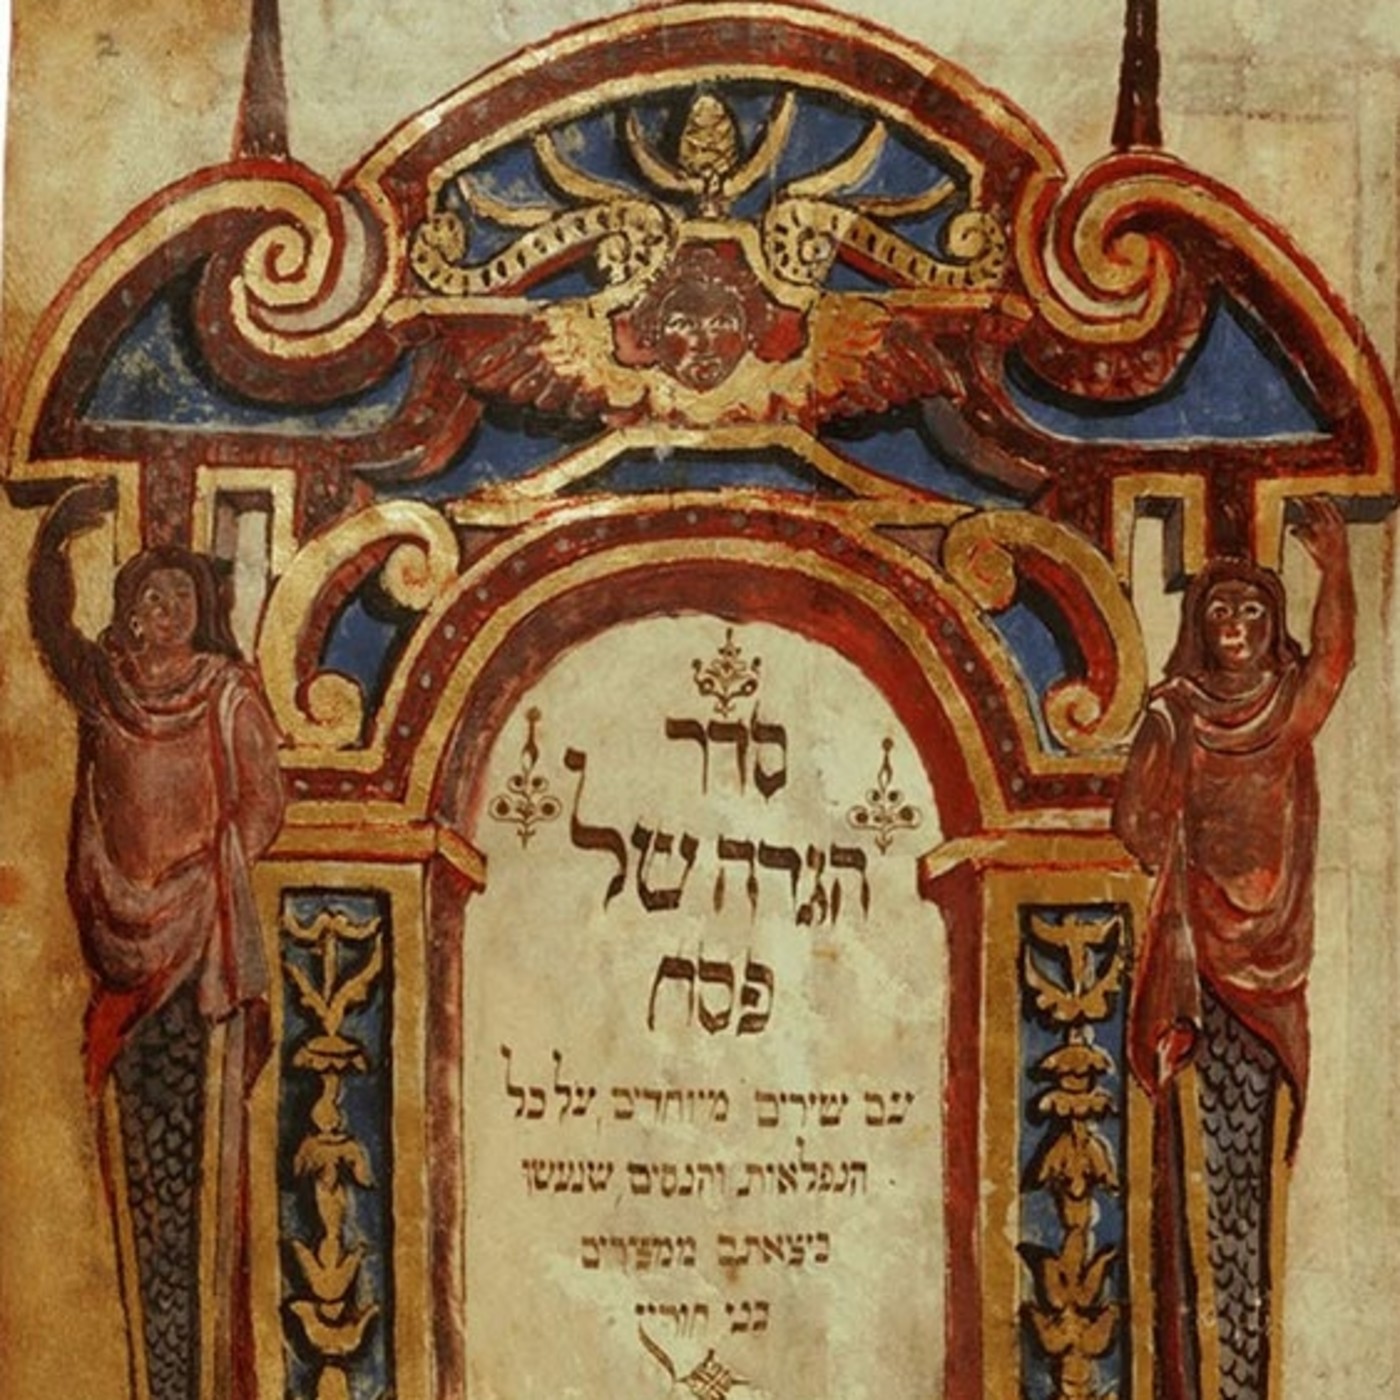 סדר
הגדה של
פסח
עם שירים מיוחדים על כל
הנפלאות והנסים שנעשו
בצאתם ממצרים
בני חורין